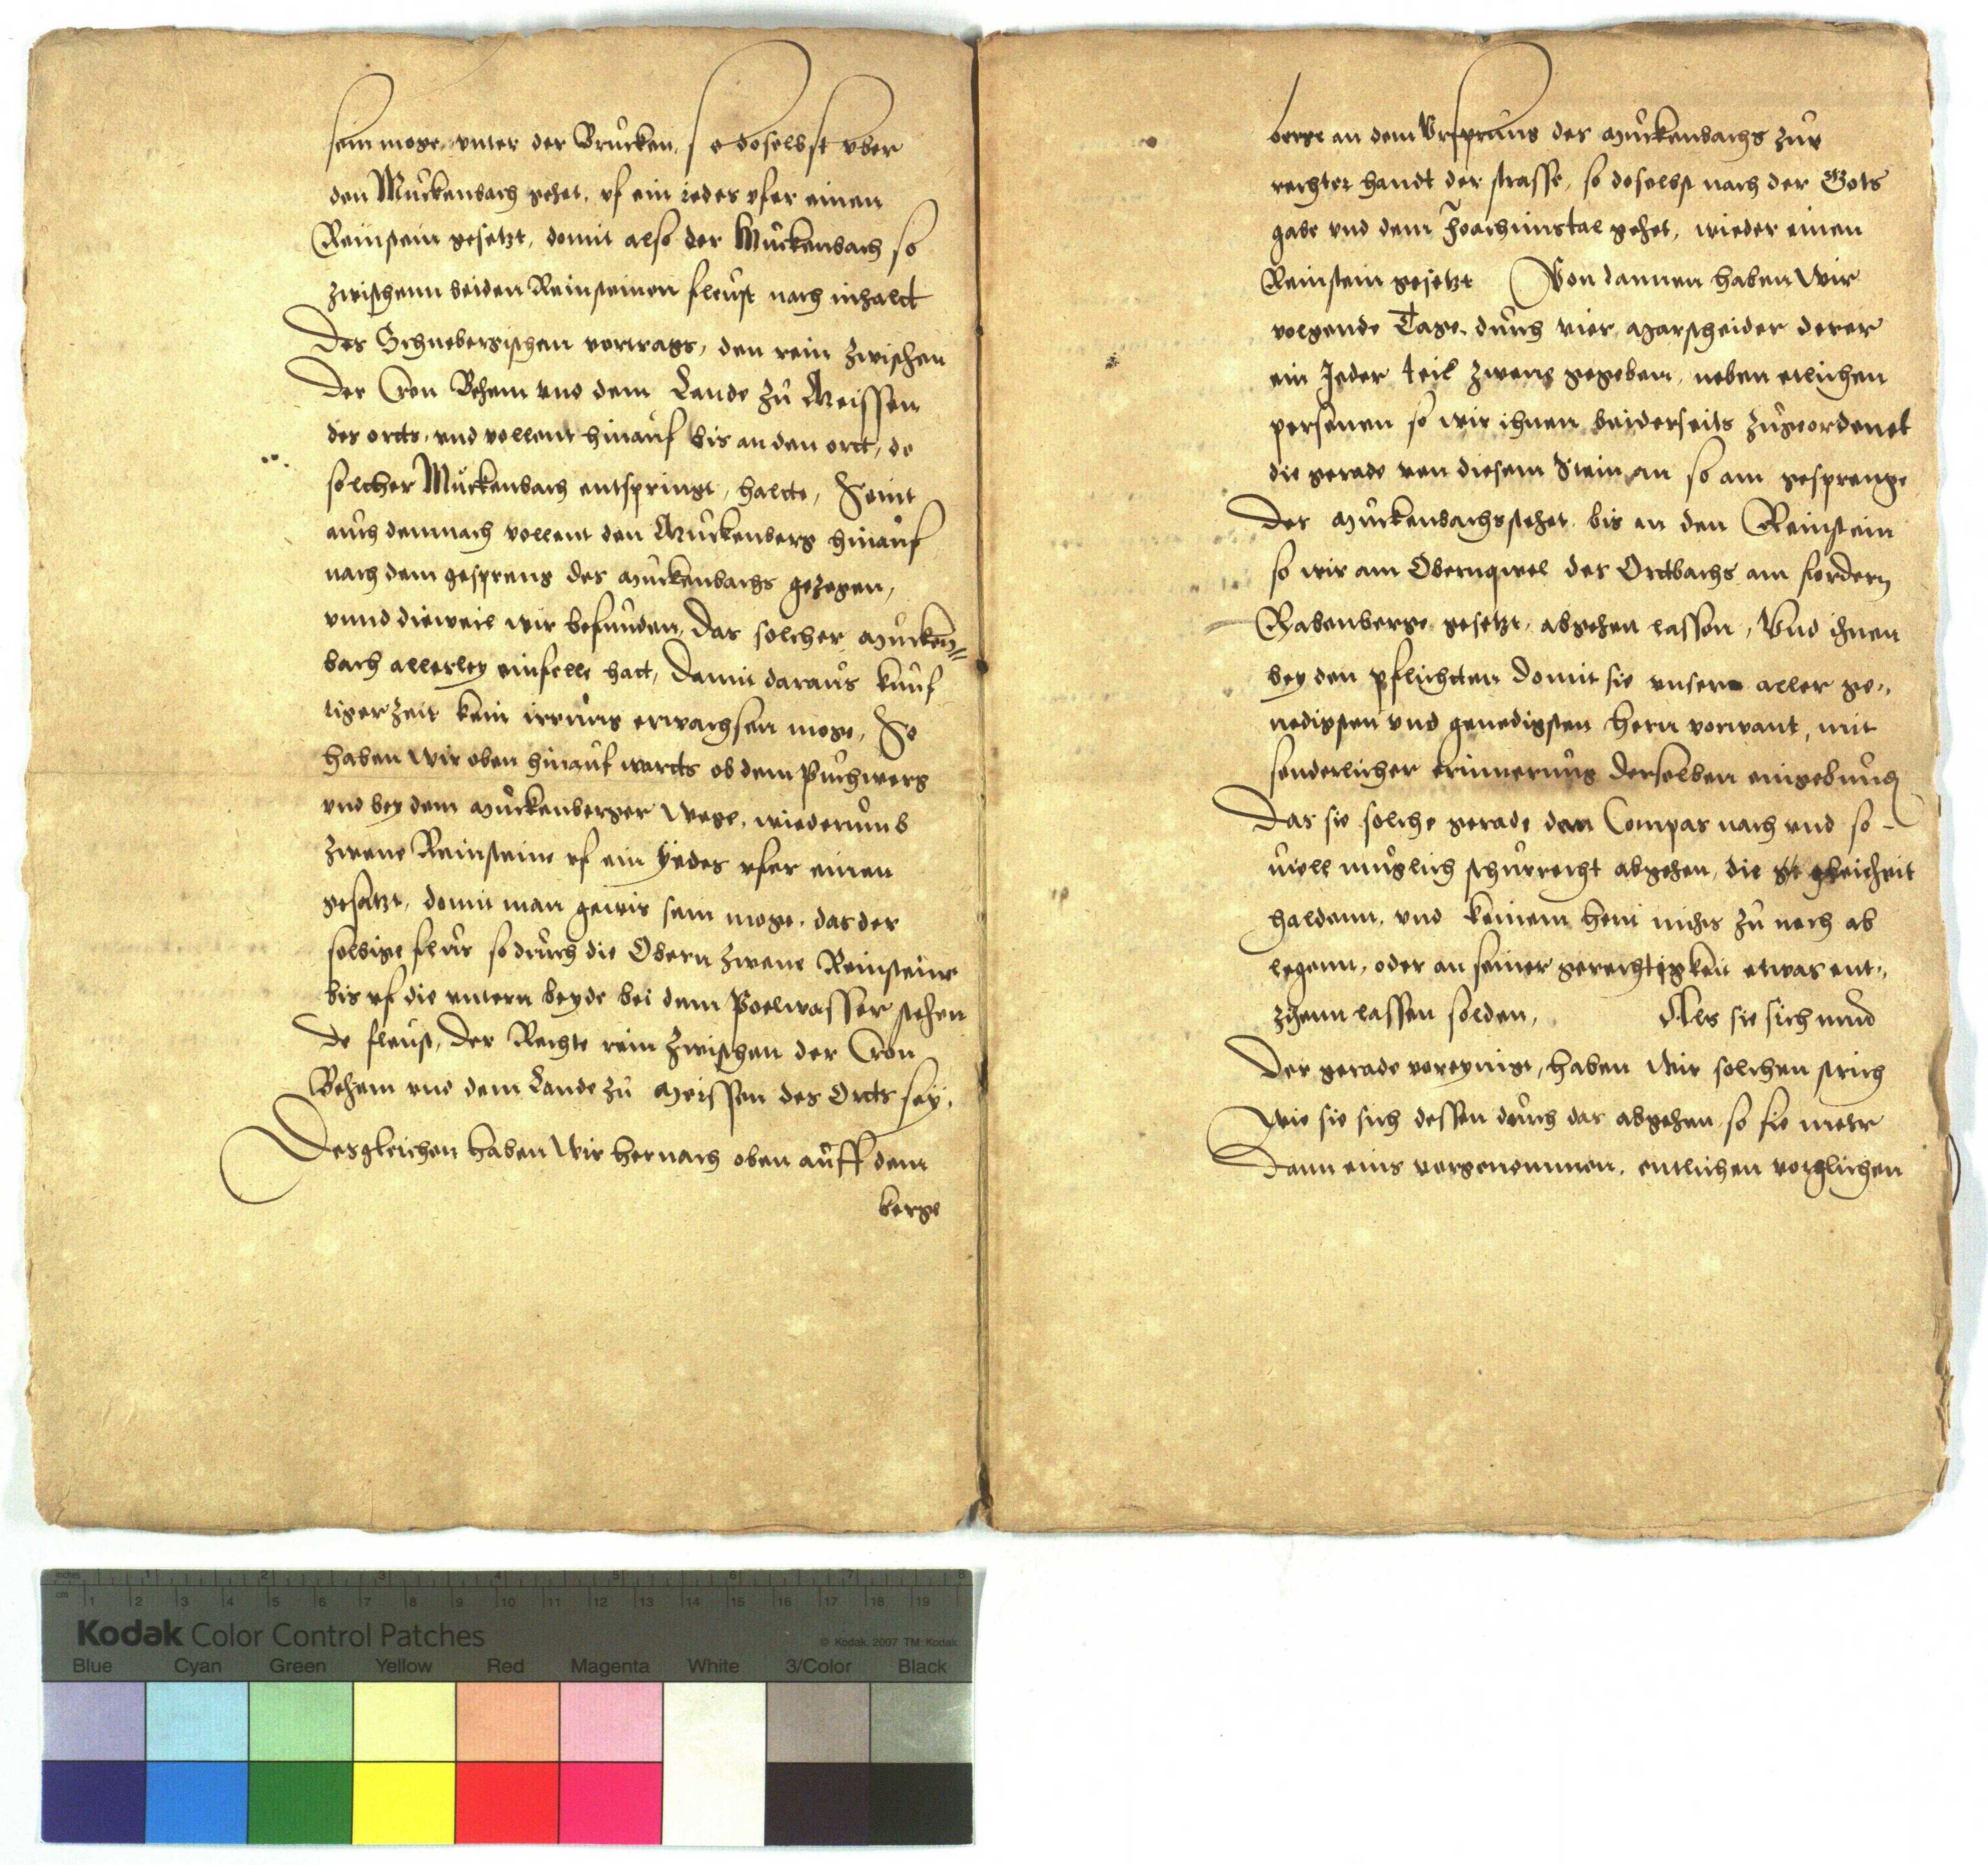 sein moge, vnter der Brucken, so doselbst vber
den Muckenbach gehet, vf ein iedes vfer einen
Reinstein gesetzt, domit also der Muckenbach so
zwischenn beiden Reinsteinen fleust nach inhalt
Des Schnebergischen vortrags, den rein zwischen
Der Cron Behem vnd dem Lande zu Meissen
des orts, vnd vollent hinauf bis an den ortt, do
solcher Muckenbach entspringt, haltte, Seint
auch demnach vollent den Muckenberg hinauf
nach dem gespreng des Muckenbachs gezogen,
vnnd dieweil wir befunden, Das solcher Mucken=
bach allerley einfelle hatt, Damit daraus kunf
tiger zeit kein irrung erwachsen moge, So
haben Wir oben hinauf wartts ob dem Puchwerg
vnd bey dem Muckenberger Wege, wiederumb
zwene Reinsteine vf ein Yedes vfer einen
gesatzt, domit man gewis sein moge, das der
selbige flus so durch die Obern zwene Reinsteine
bis vf die vntern beyde bei dem Poelwasser stehen
de fleust, Der Rechte rein zwischen der Cron
Behem vnd dem Lande zu Meissen des Ortts sey,
Desgleichen haben Wir hernach oben auff dem
berge
berge an dem Vrsprung des Muckenbachs zur
rechter handt der strasse, so doselbst nach der Gots
gabe vnd dem Joachimstal gehet, wieder einen
Reinstein gesetzt Von dannen haben Wir
volgende Tage durch vier Marscheider derer
ein Jeder teil zwene gegeben, neben etlichen
personen so wir ihnen beiderseits zugeordenet
die gerade von diesem Stein an so am gesprenge
Des Muckenbachs stehet bis an den Reinstein
so wir am Obernqwel des Ortbachs am fordern
Rabenberge gesetzt, abgehen lassen, Vnd ihnen
bey den pflichtten Domit sie vnsern aller ge„
nedigsten vnd genedigsten hern vorwant, mit
sonderlicher erinnerung Derselben eingebunden
Das sie solche gerade dem Compas nach vnd so-
uiell muglich schnurrecht abgehen, die gleicheit
haldenn, vnd keinem hern nichts zu noch ab
legenn, oder an seiner gerechtigkeit etwas ent„
zihenn lassen solden, Als sie sich nund
Der gerade voreynigt, haben Wir solchen strich
Wie sie sich dessen durch das abgehen so sie mehr
Dann eins vorgenommen, entlichen vorglichen
Kodak Color Control Patches
© Kodak, 2007 TM: Kodak
inches 1 2 3 4 5 6 7 8
cm 1 2 3 4 5 6 7 8 9 10 11 12 13 14 15 16 17 18 19
Blue Cyan Green Yellow Red Magenta White 3/Color Black